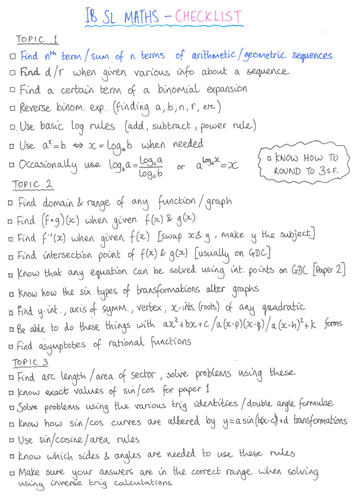 IB SL MATHS – CHECKLIST
TOPIC 1
▫ Find nᵗʰ term/sum of n terms of arithmetic/geometric sequences
▫ Find d/r when given various info about a sequence
▫ Find a certain term of a binomial expansion
▫ Reverse binom. exp. (finding a, b, n, r, etc.)
▫ Use basic log rules (add, subtract, power rule)
▫ Use aˣ=b ⇔ x = logₐb when needed
▫ Occasionally use logₐb = log꜀a / log꜀b or a^(logₐx) = x
▫ KNOW HOW TO
ROUND TO 3 S.F.
TOPIC 2
▫ Find domain & range of any function/graph
▫ Find (f∘g)(x) when given f(x) & g(x)
▫ Find f⁻¹(x) when given f(x) [swap x & y, make y the subject]
▫ Find intersection point of f(x) & g(x) [usually on GDC]
▫ Know that any equation can be solved using int. points on GDC [Paper 2]
▫ Know how the six types of transformations alter graphs
▫ Find y-int., axis of symm., vertex, x-ints. (roots) of any quadratic
▫ Be able to do these things with ax²+bx+c / a(x-p)(x-q) / a(x-h)²+k forms
▫ Find asymptotes of rational functions
TOPIC 3
▫ Find arc length/area of sector, solve problems using these
▫ Know exact values of sin/cos for paper 1
▫ Solve problems using the various trig identities/double angle formulae
▫ Know how sin/cos curves are altered by y = a sin(b(x-c))+d transformations
▫ Use sin/cosine/area rules
▫ Know which sides & angles are needed to use these rules
▫ Make sure your answers are in the correct range when solving
using inverse trig calculations